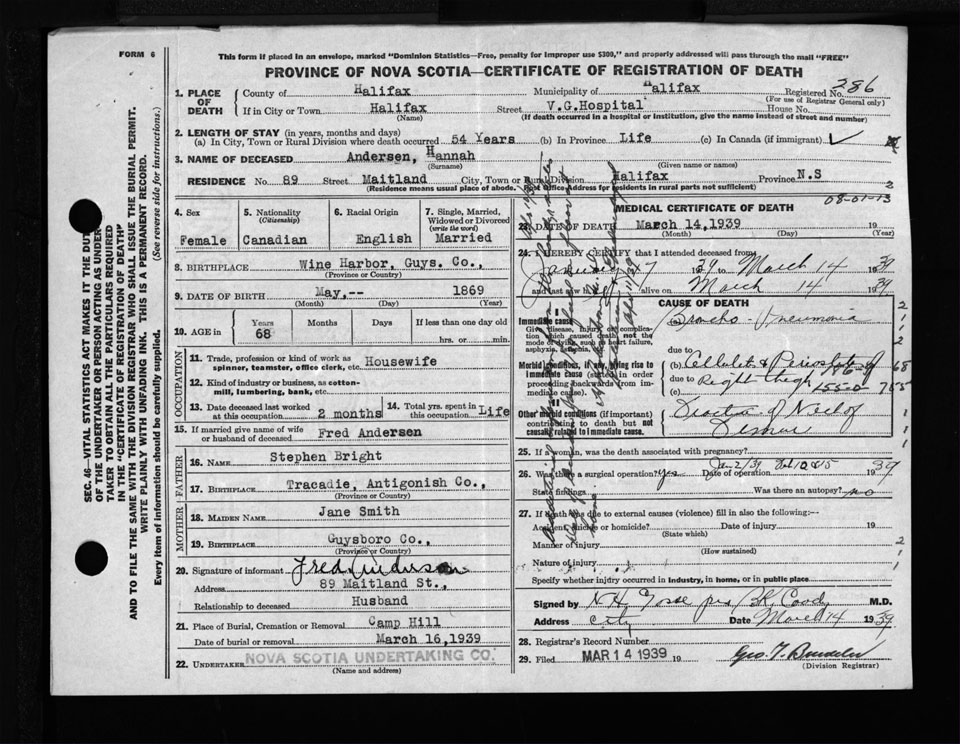 FORM 6
This form if placed in an envelope, marked "Dominion Statistics—Free, penalty for improper use $300," and properly addressed will pass through the mail "FREE"
PROVINCE OF NOVA SCOTIA—CERTIFICATE OF REGISTRATION OF DEATH
286
1. PLACE OF DEATH
County of Halifax Municipality of Halifax Registered No.
(For use of Registrar General only)
If in City or Town Halifax Street V.G.Hospital House No.
(Name) (If death occurred in a hospital or institution, give the name instead of street and number)
2. LENGTH OF STAY (in years, months and days)
(a) In City, Town or Rural Division where death occurred 54 Years (b) In Province Life (c) In Canada (if immigrant)
3. NAME OF DECEASED Andersen, Hannah
(Surname) (Given name or names)
RESIDENCE No. 89 Street Maitland City, Town or Rural Division Halifax Province N.S
(Residence means usual place of abode. Post office address for residents in rural parts not sufficient)
08-01-13
4. Sex
Female
5. Nationality (Citizenship)
Canadian
6. Racial Origin
English
7. Single, Married, Widowed or Divorced (write the word)
Married
8. BIRTHPLACE Wine Harbor, Guys. Co.,
(Province or Country)
9. DATE OF BIRTH May,-- 1869
(Month) (Day) (Year)
10. AGE in
Years Months Days If less than one day old
68 hrs. or min.
OCCUPATION
11. Trade, profession or kind of work as spinner, teamster, office clerk, etc. Housewife
12. Kind of industry or business, as cotton-mill, lumbering, bank, etc.
13. Date deceased last worked at this occupation 2 months
14. Total yrs. spent in this occupation Life
15. If married give name of wife or husband of deceased Fred Andersen
FATHER
16. NAME Stephen Bright
17. BIRTHPLACE Tracadie, Antigonish Co.,
(Province or Country)
MOTHER
18. MAIDEN NAME Jane Smith
19. BIRTHPLACE Guysboro Co.,
(Province or Country)
20. Signature of informant Fred Anderson
Address 89 Maitland St.,
Relationship to deceased Husband
21. Place of Burial, Cremation or Removal Camp Hill
Date of burial or removal March 16,1939
22. UNDERTAKER NOVA SCOTIA UNDERTAKING CO.
(Name and address)
MEDICAL CERTIFICATE OF DEATH
23. DATE OF DEATH March 14,1939 19
(Month) (Day) (Year)
24. I HEREBY CERTIFY that I attended deceased from
January 17 1939 to March 14 1939
and last saw h alive on March 14 1939
CAUSE OF DEATH
Immediate cause
Give disease, injury or complication which caused death, not the mode of dying, such as heart failure, asphyxia, asthenia, etc.
(a) Broncho-Pneumonia
due to
Morbid conditions, if any, giving rise to immediate cause (stated in order proceeding backwards from immediate cause).
(b) Cellulitis & Periostitis of
due to
(c) Right thigh
Other morbid conditions (if important) contributing to death but not causally related to immediate cause.
Fracture of Neck of
Femur
25. If a woman, was the death associated with pregnancy?
26. Was there a surgical operation? yes Date of operation 1939
State findings Was there an autopsy? no
27. If death was due to external causes (violence) fill in also the following:—
Accident, suicide or homicide? Date of injury 19
(State which)
Manner of injury
(How sustained)
Nature of injury
Specify whether injury occurred in industry, in home, or in public place
Signed by N H Gosse per M.D.
Address City Date March 14 1939
28. Registrar's Record Number
29. Filed MAR 14 1939 19
(Division Registrar)
SEC. 46—VITAL STATISTICS ACT MAKES IT THE DUTY
OF THE UNDERTAKER OR PERSON ACTING AS UNDER-
TAKER TO OBTAIN ALL THE PARTICULARS REQUIRED
IN THE "CERTIFICATE OF REGISTRATION OF DEATH"
AND TO FILE THE SAME WITH THE DIVISION REGISTRAR WHO SHALL ISSUE THE BURIAL PERMIT.
WRITE PLAINLY WITH UNFADING INK. THIS IS A PERMANENT RECORD.
Every item of information should be carefully supplied. (See reverse side for instructions.)